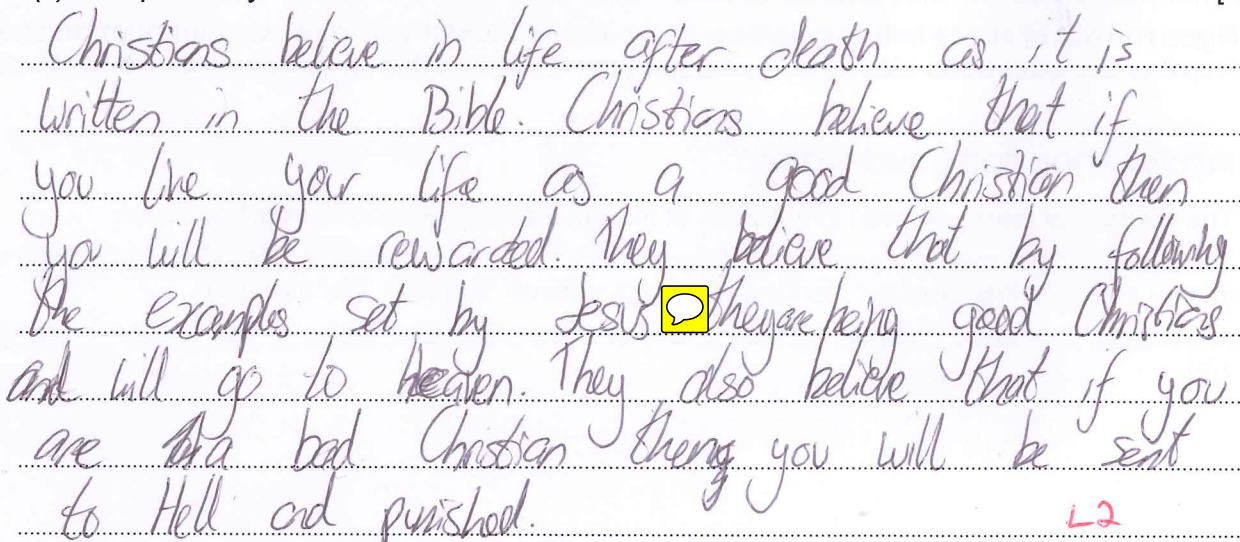 Christians believe in life after death as it is
written in the Bible. Christians believe that if
you live your life as a good Christian then
you will be rewarded. They believe that by following
the examples set by Jesus they are being good Christians
and will go to heaven. They also believe that if you
are a bad Christian then you will be sent
to Hell and punished.
L2